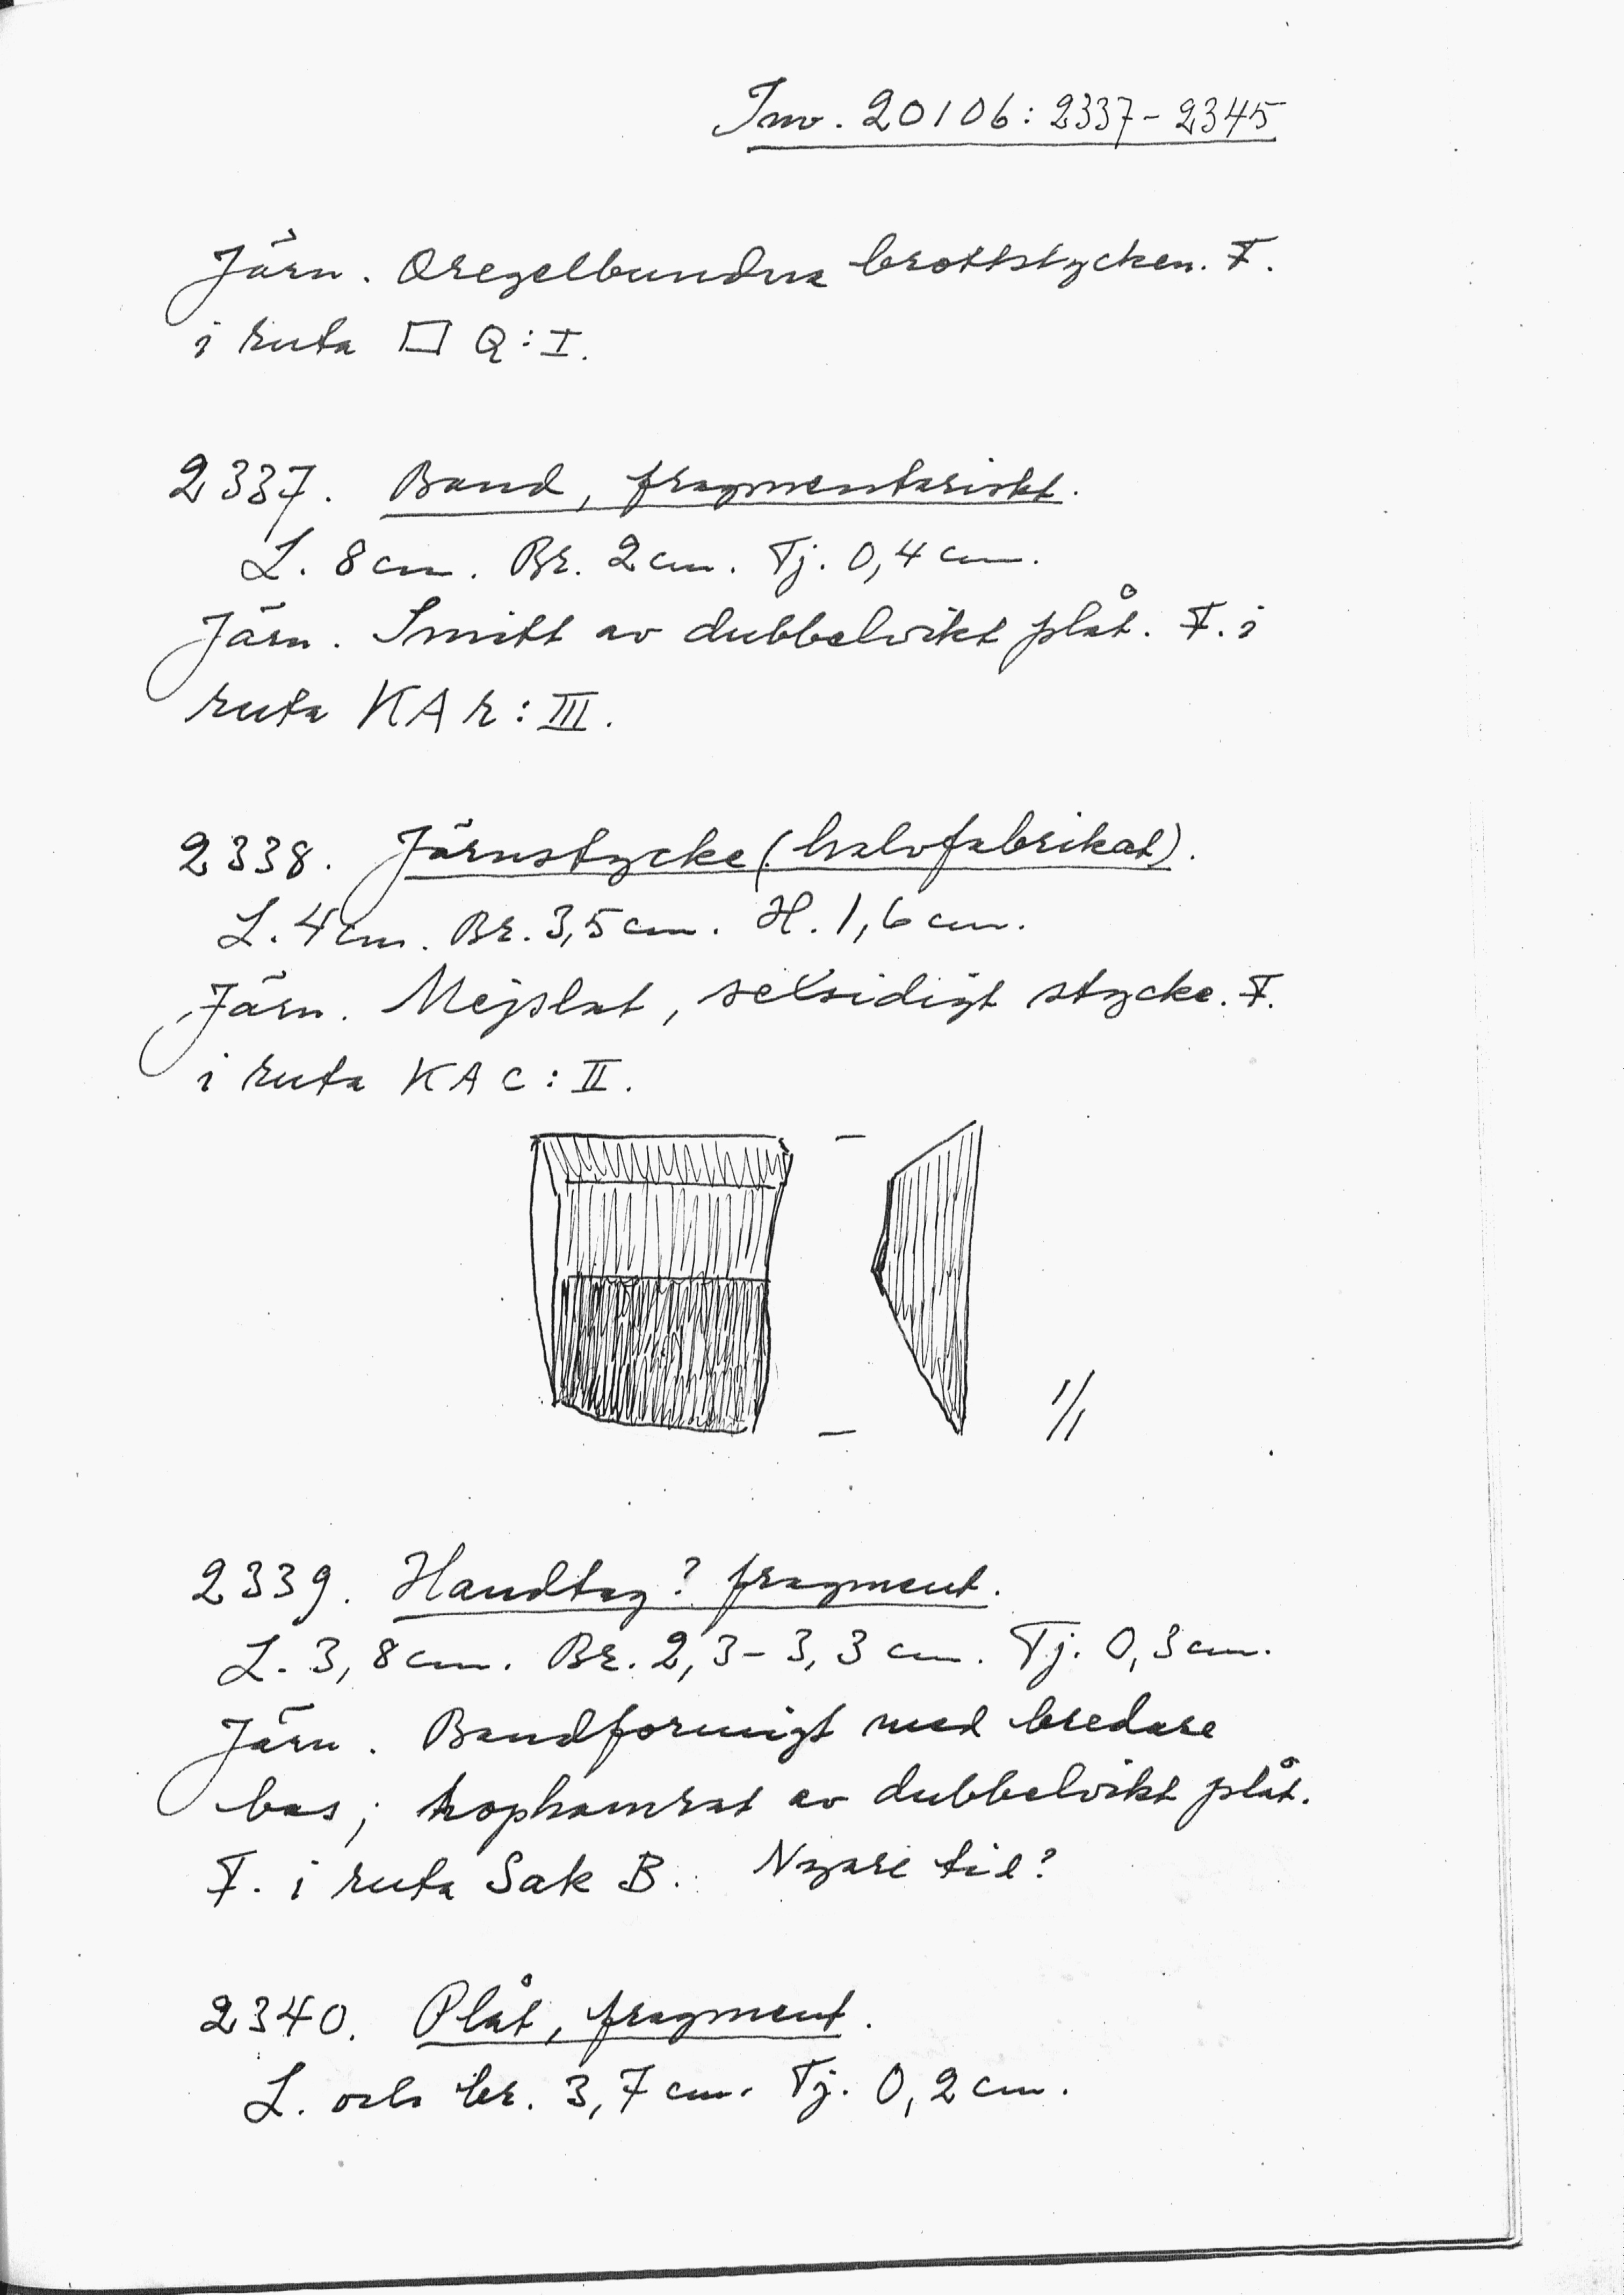 Inv. 20106: 2337-2345
Järn. Oregelbundna brottstycken. F.
i ruta □ Q: I.
2337. Band, fragmentariskt.
L. 8 cm. Br. 2 cm. Tj. 0,4 cm.
Järn. Smitt av dubbelvikt plåt. F. i
ruta KA r: III.
2338. Järnstycke (halvfabrikat).
L. 4 cm. Br. 3,5 cm. H. 1,6 cm.
Järn. Mejslat, sexsidigt stycke. F.
i ruta KA C: II.
1/1
2339. Handtag? fragment.
L. 3,8 cm. Br. 2,3-3,3 cm. Tj. 0,3 cm.
Järn. Bandformigt med bredare
bas; hophamrat av dubbelvikt plåt.
F. i ruta Sak B. Nyare tid?
2340. Plåt, fragment.
L. och br. 3,7 cm. Tj. 0,2 cm.